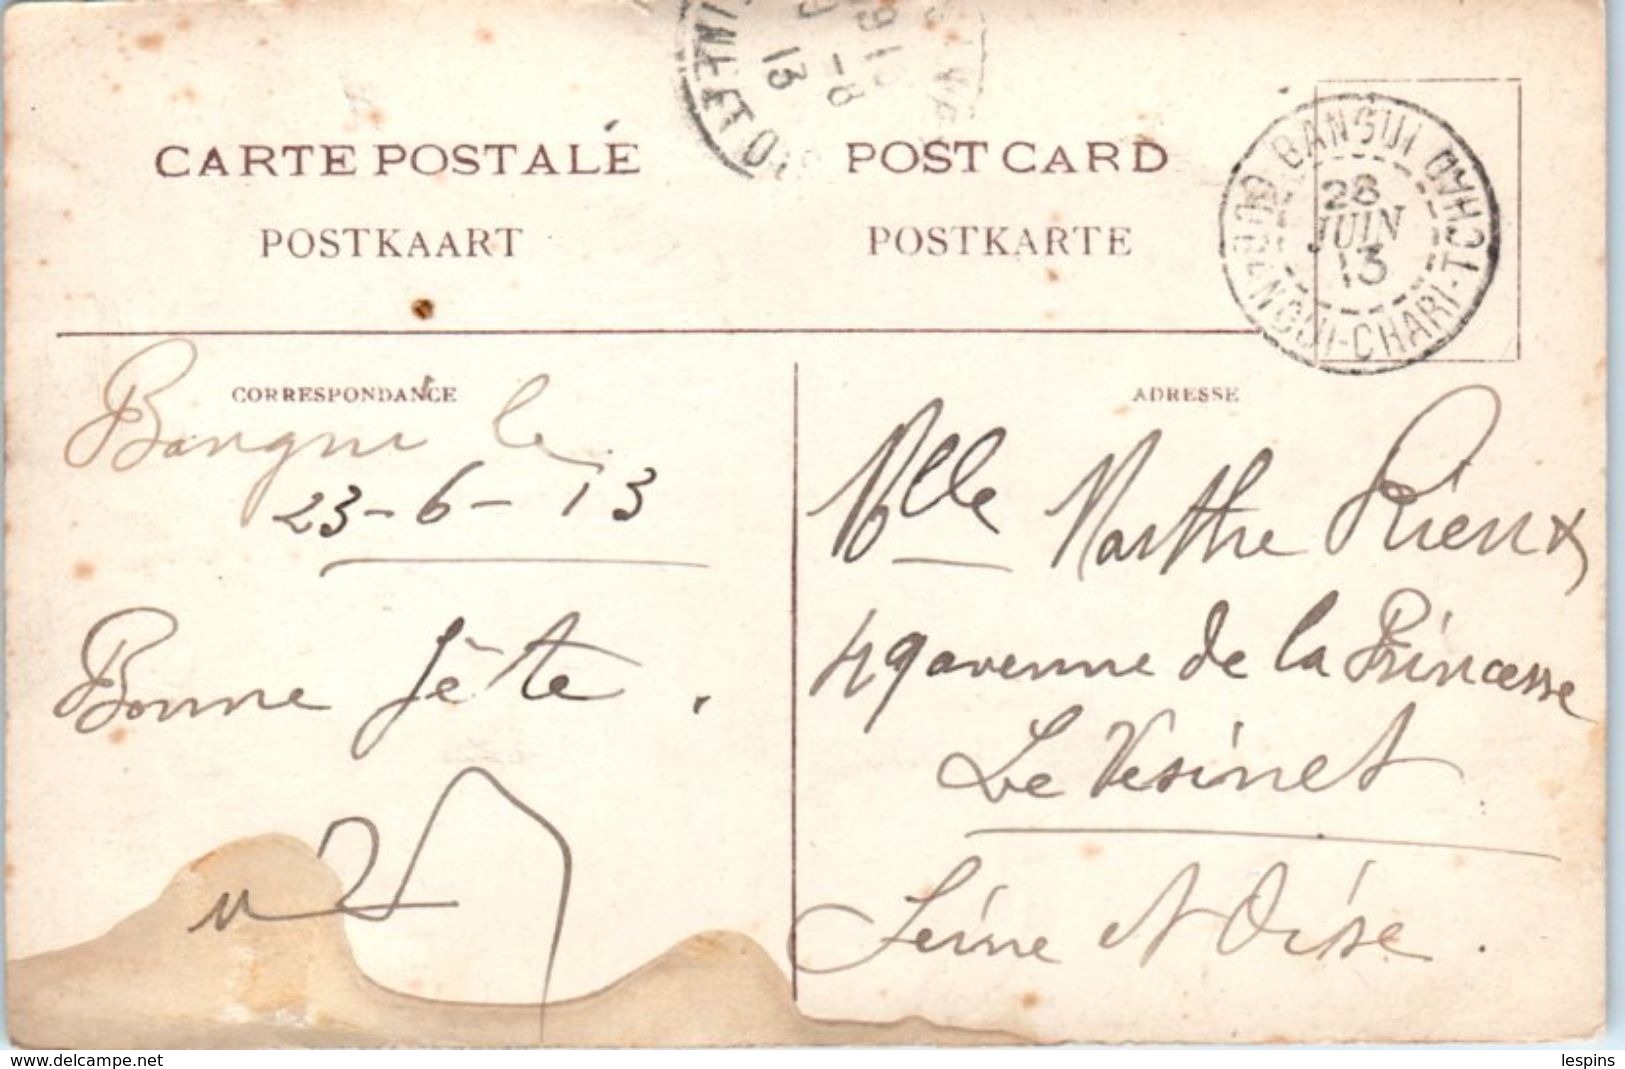 CARTE POSTALE
POST CARD
POSTKAART
POSTKARTE
13
BANGUI
28
JUIN
13
OUBANGUI-CHARI-TCHAD
CORRESPONDANCE
ADRESSE
Bangui le
23-6-13
Bonne fête.
Mlle Marthe Rieux
49 avenue de la Princesse
Le Vésinet
Seine et Oise.
www.delcampe.net
lespins